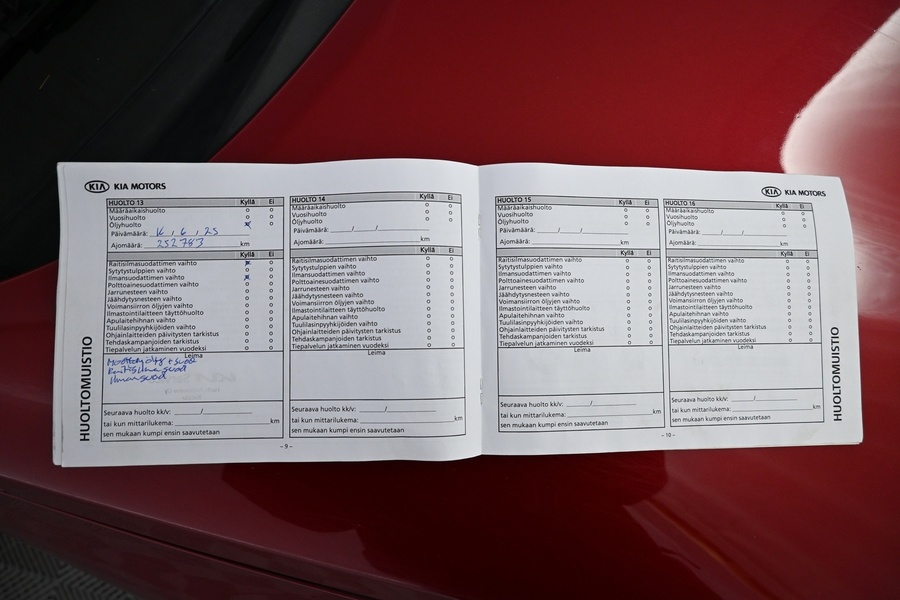 KIA KIA MOTORS
HUOLTO 13 Kyllä Ei
Määräaikaishuolto
Vuosihuolto
Öljyhuolto
Päivämäärä: 16 / 6 / 25
Ajomäärä: 252783 km
Kyllä Ei
Raitisilmasuodattimen vaihto
Sytytystulppien vaihto
Ilmansuodattimen vaihto
Polttoainesuodattimen vaihto
Jarrunesteen vaihto
Jäähdytysnesteen vaihto
Voimansiirron öljyjen vaihto
Ilmastointilaitteen täyttöhuolto
Apulaitehihnan vaihto
Tuulilasinpyyhkijöiden vaihto
Ohjainlaitteiden päivitysten tarkistus
Tehdaskampanjoiden tarkistus
Tiepalvelun jatkaminen vuodeksi
Leima
Moottoriöljy + suod
Raitisilma suod
Ilmansuod
Seuraava huolto kk/v: /
tai kun mittarilukema: km
sen mukaan kumpi ensin saavutetaan
HUOLTOMUISTIO
HUOLTO 14 Kyllä Ei
Määräaikaishuolto
Vuosihuolto
Öljyhuolto
Päivämäärä: / /
Ajomäärä: km
Kyllä Ei
Raitisilmasuodattimen vaihto
Sytytystulppien vaihto
Ilmansuodattimen vaihto
Polttoainesuodattimen vaihto
Jarrunesteen vaihto
Jäähdytysnesteen vaihto
Voimansiirron öljyjen vaihto
Ilmastointilaitteen täyttöhuolto
Apulaitehihnan vaihto
Tuulilasinpyyhkijöiden vaihto
Ohjainlaitteiden päivitysten tarkistus
Tehdaskampanjoiden tarkistus
Tiepalvelun jatkaminen vuodeksi
Leima
Seuraava huolto kk/v: /
tai kun mittarilukema: km
sen mukaan kumpi ensin saavutetaan
– 9 –
KIA KIA MOTORS
HUOLTO 15 Kyllä Ei
Määräaikaishuolto
Vuosihuolto
Öljyhuolto
Päivämäärä: / /
Ajomäärä: km
Kyllä Ei
Raitisilmasuodattimen vaihto
Sytytystulppien vaihto
Ilmansuodattimen vaihto
Polttoainesuodattimen vaihto
Jarrunesteen vaihto
Jäähdytysnesteen vaihto
Voimansiirron öljyjen vaihto
Ilmastointilaitteen täyttöhuolto
Apulaitehihnan vaihto
Tuulilasinpyyhkijöiden vaihto
Ohjainlaitteiden päivitysten tarkistus
Tehdaskampanjoiden tarkistus
Tiepalvelun jatkaminen vuodeksi
Leima
Seuraava huolto kk/v: /
tai kun mittarilukema: km
sen mukaan kumpi ensin saavutetaan
HUOLTO 16 Kyllä Ei
Määräaikaishuolto
Vuosihuolto
Öljyhuolto
Päivämäärä: / /
Ajomäärä: km
Kyllä Ei
Raitisilmasuodattimen vaihto
Sytytystulppien vaihto
Ilmansuodattimen vaihto
Polttoainesuodattimen vaihto
Jarrunesteen vaihto
Jäähdytysnesteen vaihto
Voimansiirron öljyjen vaihto
Ilmastointilaitteen täyttöhuolto
Apulaitehihnan vaihto
Tuulilasinpyyhkijöiden vaihto
Ohjainlaitteiden päivitysten tarkistus
Tehdaskampanjoiden tarkistus
Tiepalvelun jatkaminen vuodeksi
Leima
Seuraava huolto kk/v: /
tai kun mittarilukema: km
sen mukaan kumpi ensin saavutetaan
HUOLTOMUISTIO
– 10 –